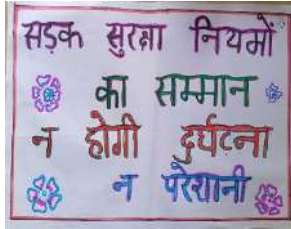 सड़क सुरक्षा नियमों
का सम्मान
न होगी दुर्घटना
न परेशानी